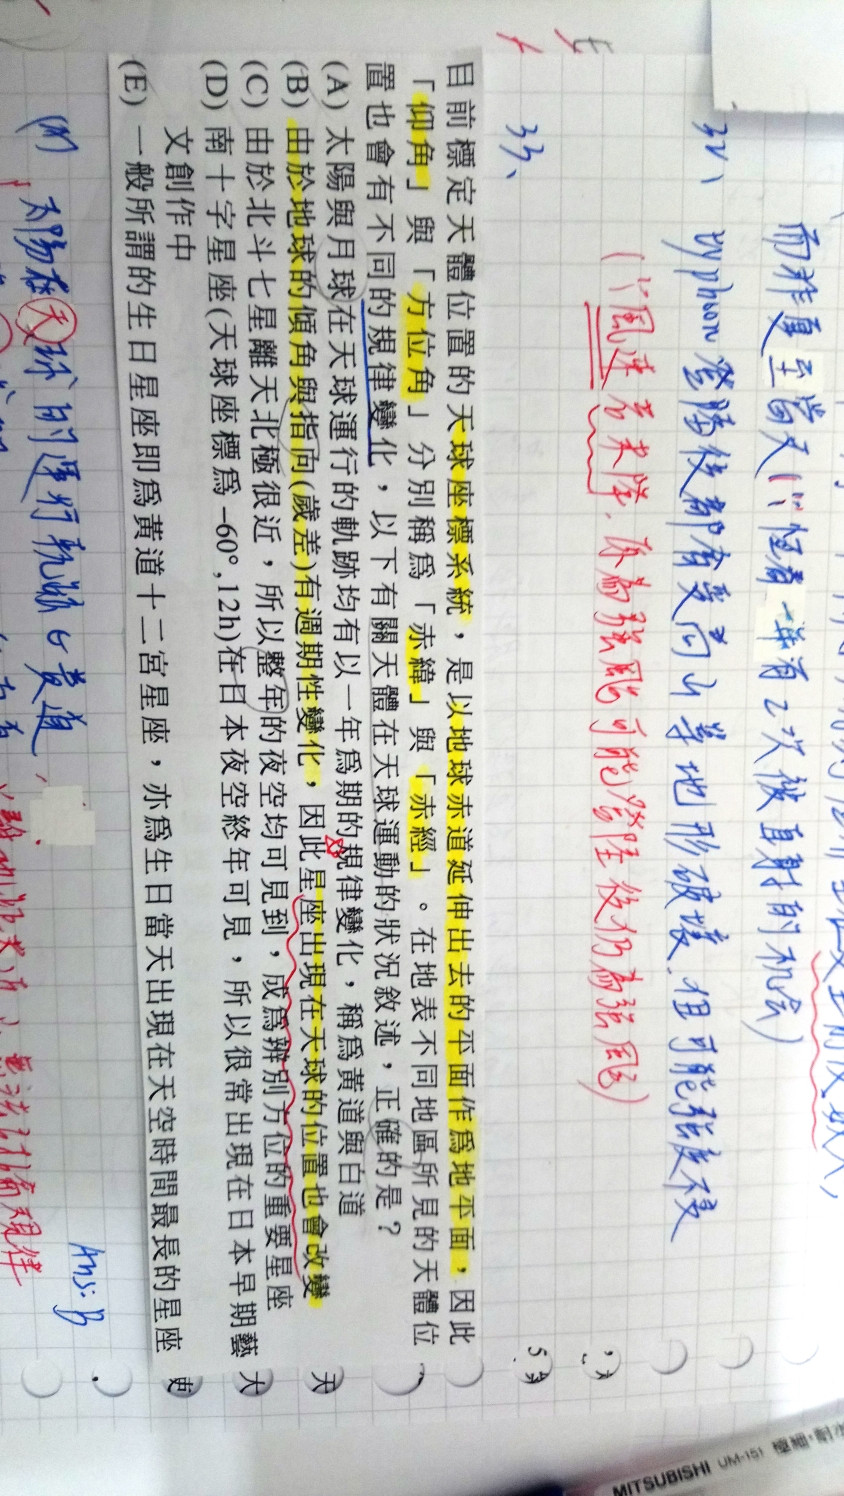 而非夏至當天
一年有2次被直射的机会)
32、typhoon登陸後都會受高山等地形破壞,但可能強度不变
(∵風速若未降,原為強颱可能登陸後仍為強颱)
33、
目前標定天體位置的天球座標系統,是以地球赤道延伸出去的平面作為地平面,因此
「仰角」與「方位角」分別稱為「赤緯」與「赤經」。在地表不同地區所見的天體位
置也會有不同的規律變化,以下有關天體在天球運動的狀況敘述,正確的是?
(A) 太陽與月球在天球運行的軌跡均有以一年為期的規律變化,稱為黃道與白道
(B) 由於地球的傾角與指向(歲差)有週期性變化,因此星座出現在天球的位置也會改變
(C) 由於北斗七星離天北極很近,所以整年的夜空均可見到,成為辨別方位的重要星座
(D) 南十字星座(天球座標為-60°,12h)在日本夜空終年可見,所以很常出現在日本早期藝
文創作中
(E) 一般所謂的生日星座即為黃道十二宮星座,亦為生日當天出現在天空時間最長的星座
天
大
吏
Ans: B
(A) 太陽在天球的運行軌跡 黃道
MITSUBISHI UM-151 極細・耐水